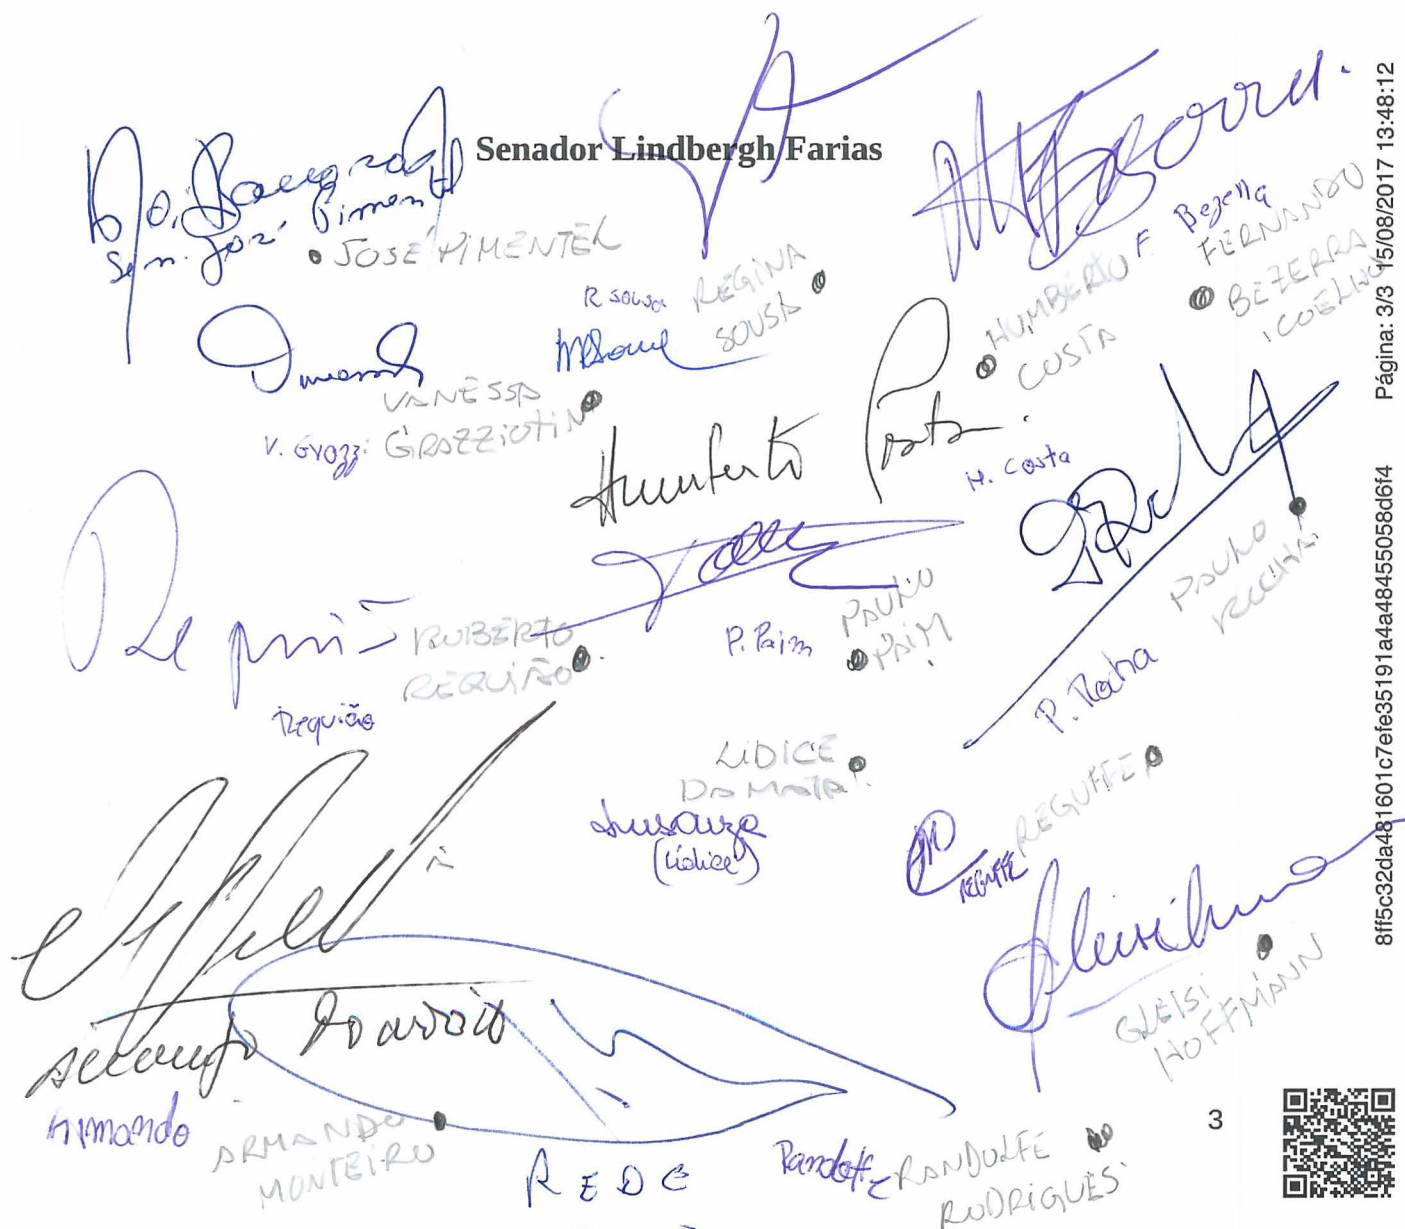 Senador Lindbergh Farias
Sen. José Pimentel
JOSÉ PIMENTEL
R Sousa
REGINA
SOUSA
F. Bezerra
FERNANDO
BEZERRA
COELHO
HUMBERTO
COSTA
VANESSA
GRAZZIOTIN
V. Grazzi
Humberto Costa
H. Costa
Requião
ROBERTO
REQUIÃO
Requião
P. Paim
PAULO
PAIM
PAULO
ROCHA
P. Rocha
LÍDICE
DA MATA
(Lídice)
REGUFFE
REGUFFE
GLEISI
HOFFMANN
Armando
ARMANDO
MONTEIRO
REDE
Randolfe
RANDOLFE
RODRIGUES
3
Página: 3/3 15/08/2017 13:48:12
8ff5c32da481601c7efe35191a4a4845505​8d6f4